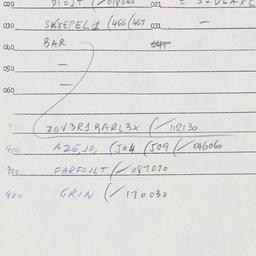 020 PIOJT (/018060 021 = SZVLAXC
030 SKREPEL1 (466 (467 031 —
040 BAR 041
050 —
060 —
ZOV3R1BARL3X (/112130
900 AZGJO, (504 (509 (/046060
900 FARFOJLT (/087070
900 GRIN (/170030